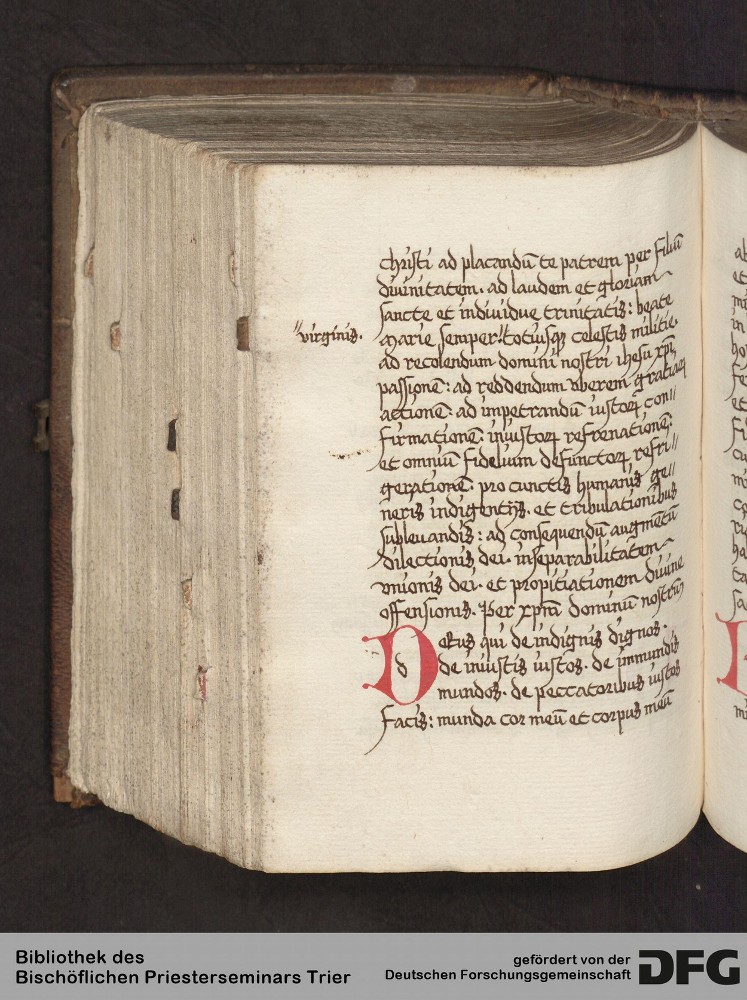 christi ad placandū te patrem per filiū
diuinitatem. ad laudem et gloriam
sancte et indiuidue trinitatis: beate
"virginis.
marie semper: totiusqꝫ celestis militie.
ad recolendum domini nostri ihesu xp̄i
passionē: ad reddendum vberem gratiaꝝ
actionē. ad impetrandū iustoꝝ con//
firmationē. iniustoꝝ refrenationē:
et omniū fidelium defunctoꝝ refri//
gerationē. pro cunctis humanis ge//
neris indigentijs. et tribulationibus
subleuandis: ad consequendū augmētū
dilectionis dei. inseparabilitatem
vnionis dei. et propitiationem diuine
offensionis. Per xp̄m dominū nostrū
Deus qui de indignis dignos.
d
de iniustis iustos. de immundis
mundos. de peccatoribus iustos
facis: munda cor meū et corpus meū
Bibliothek des
Bischöflichen Priesterseminars Trier
gefördert von der
Deutschen Forschungsgemeinschaft
DFG